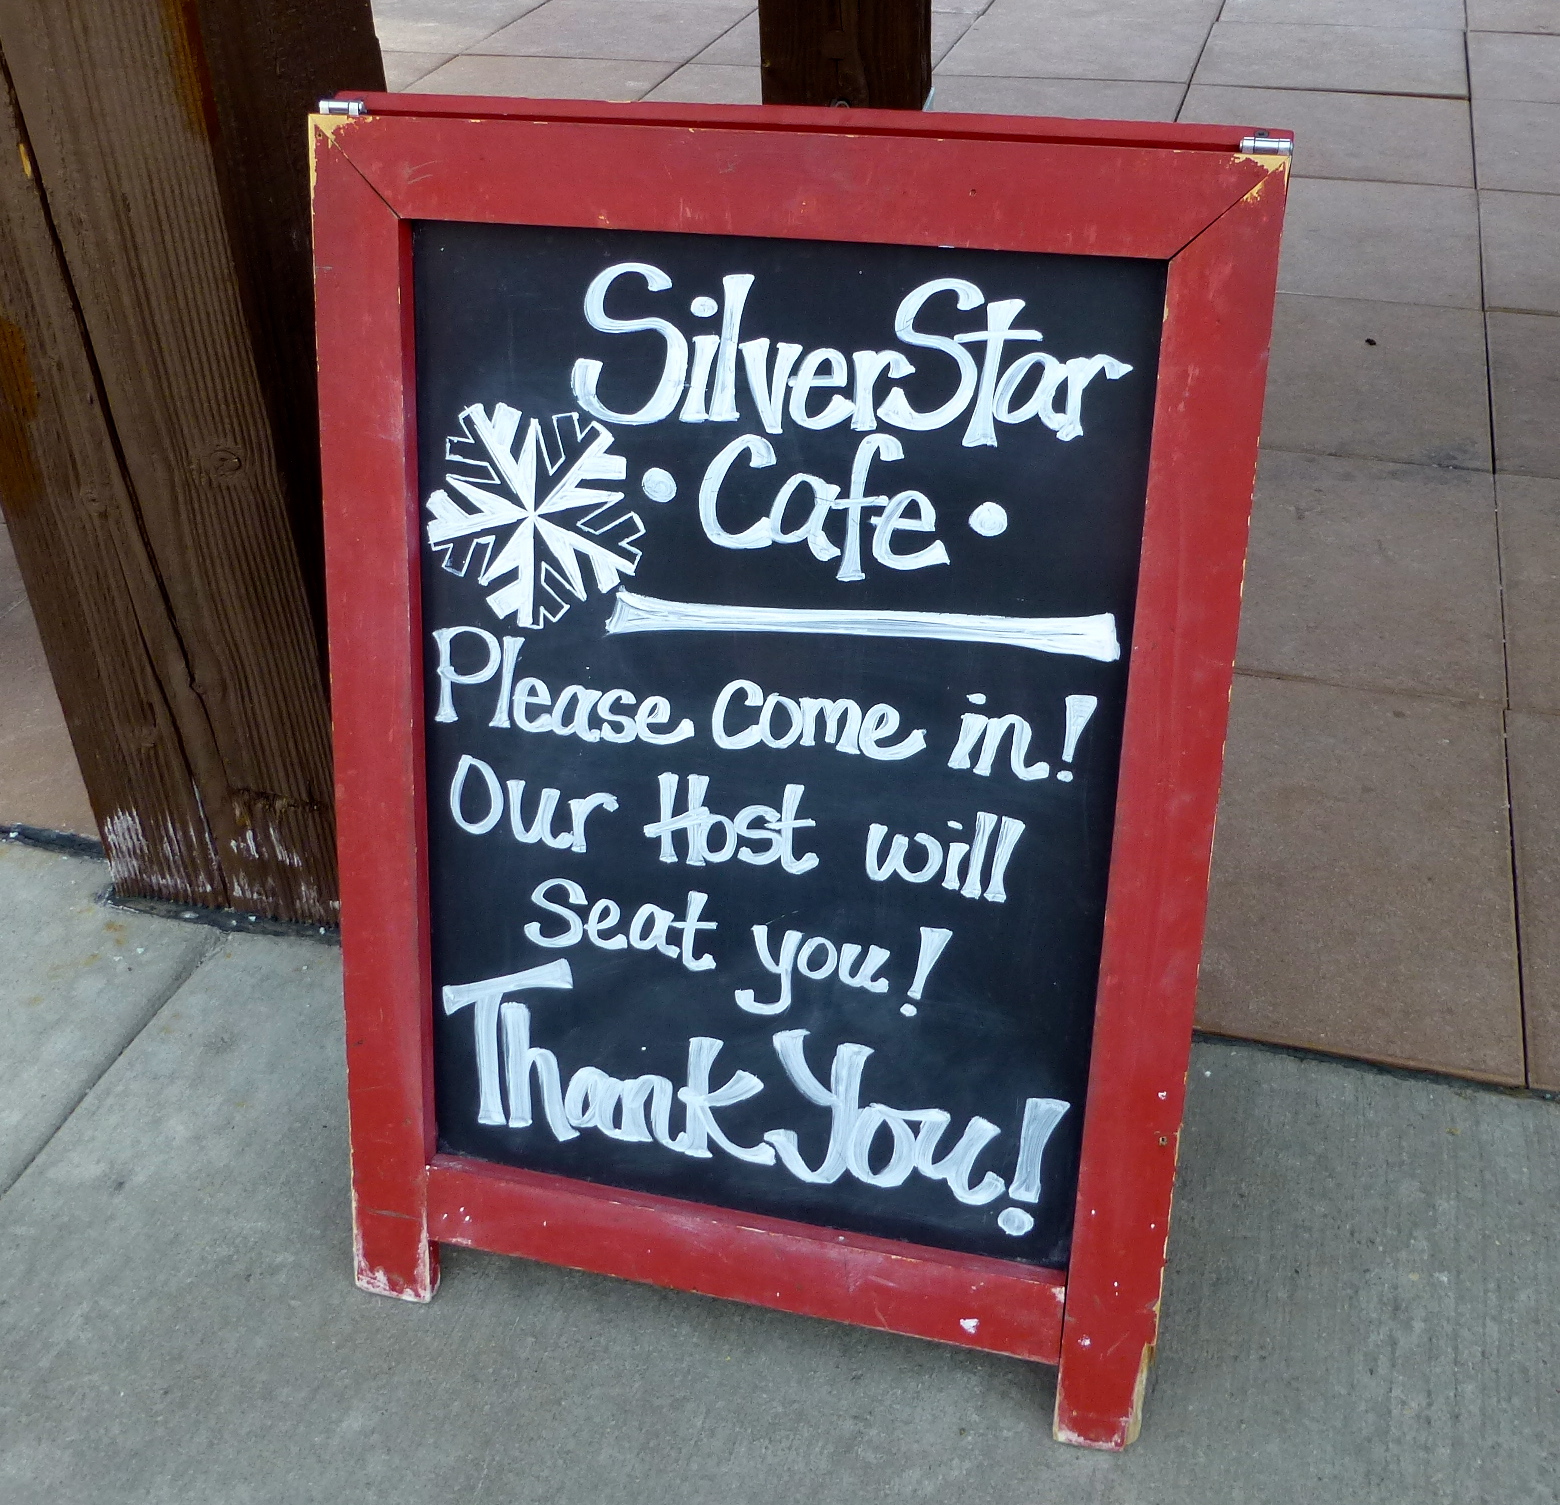 SilverStar
• Cafe •
Please come in!
Our Host will
seat you!
Thank You!